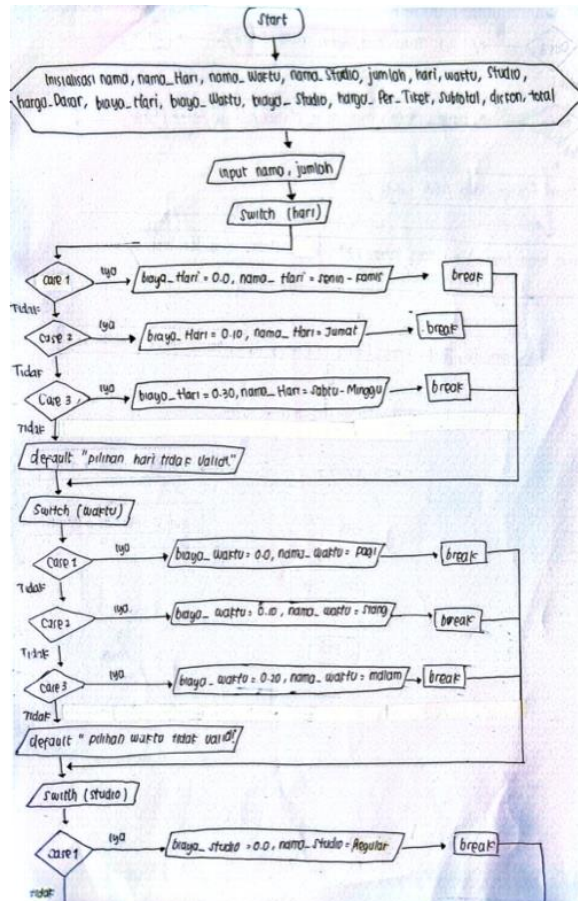 Start
Inisialisasi nama, nama_Hari, nama_Waktu, nama_Studio, jumlah, hari, waktu, Studio,
harga_Dasar, biaya_Hari, biaya_Waktu, biaya_Studio, harga_Per_Tiket, Subtotal, diskon, total
input nama, jumlah
Switch (hari)
Case 1
iya
biaya_Hari = 0.0, nama_Hari = senin - kamis
break
Tidak
Case 2
iya
biaya_Hari = 0.10, nama_Hari = Jumat
break
Tidak
Case 3
iya
biaya_Hari = 0.30, nama_Hari = sabtu - Minggu
break
Tidak
default "pilihan hari tidak valid"
Switch (waktu)
Case 1
iya
biaya_waktu = 0.0, nama_waktu = pagi
break
Tidak
Case 2
iya
biaya_waktu = 0.10, nama_waktu = siang
break
Tidak
Case 3
iya
biaya_waktu = 0.20, nama_waktu = malam
break
Tidak
default "pilihan waktu tidak valid"
Switch (studio)
Case 1
iya
biaya_studio = 0.0, nama_studio = Regular
break
Tidak